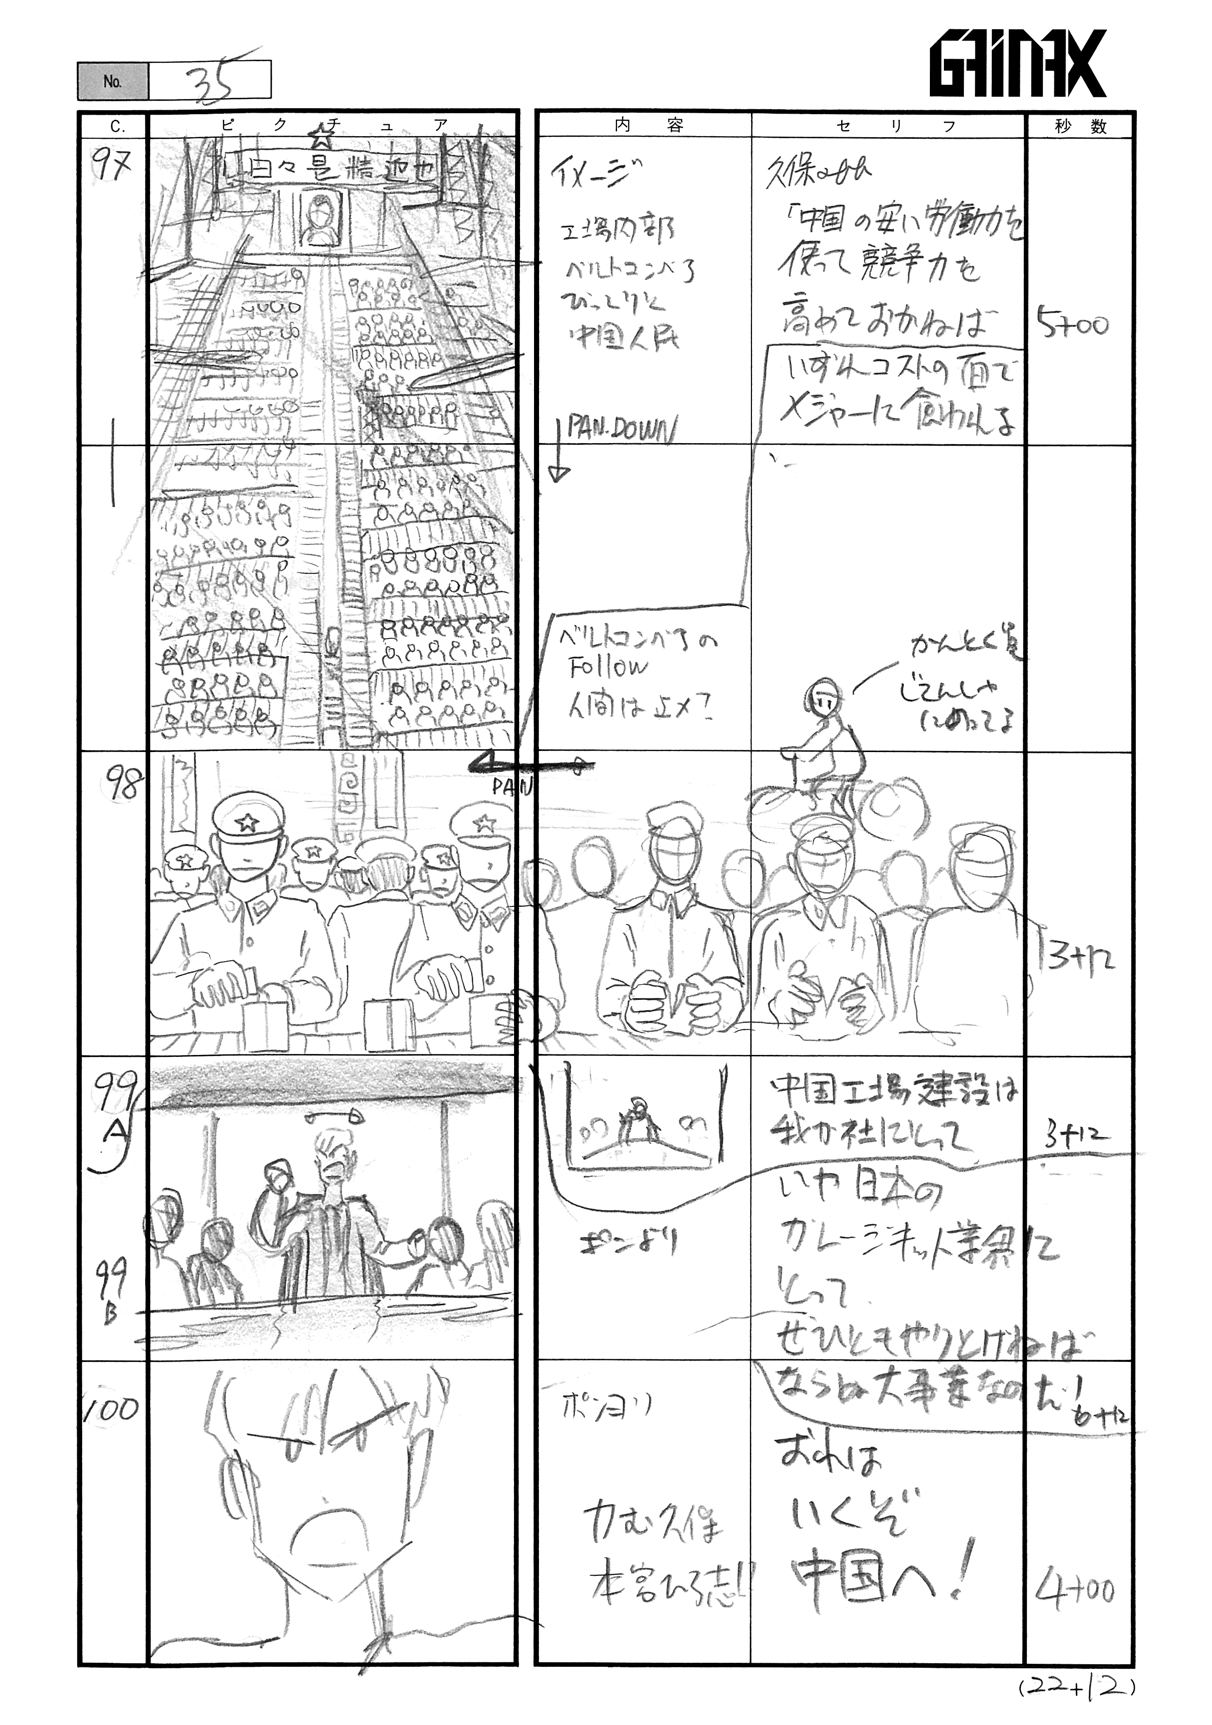 GAINAX
No. 35
C. ピクチュア 内容 セリフ 秒数
97
日々是精進也
イメージ
工場内部
ベルトコンベヤ
びっしりと
中国人民
PAN.DOWN
久保
「中国の安い労働力を
使って競争力を
高めておかねば
いずれコストの面で
メジャーに食われる
5+00
ベルトコンベヤの
Follow
人間は止メ?
かんとく員
じてんしゃ
にのってる
98
PAN
3+12
99
A
中国工場建設は
我が社にとって
3+12
99
B
ポンより
いや日本の
ガレージキット業界に
とって
ぜひともやりとげねば
ならぬ大事業なのだ!
6+12
100
ポンヨリ
力む久保
本宮ひろ志!!
おれは
いくぞ
中国へ!
4+00
(22+12)